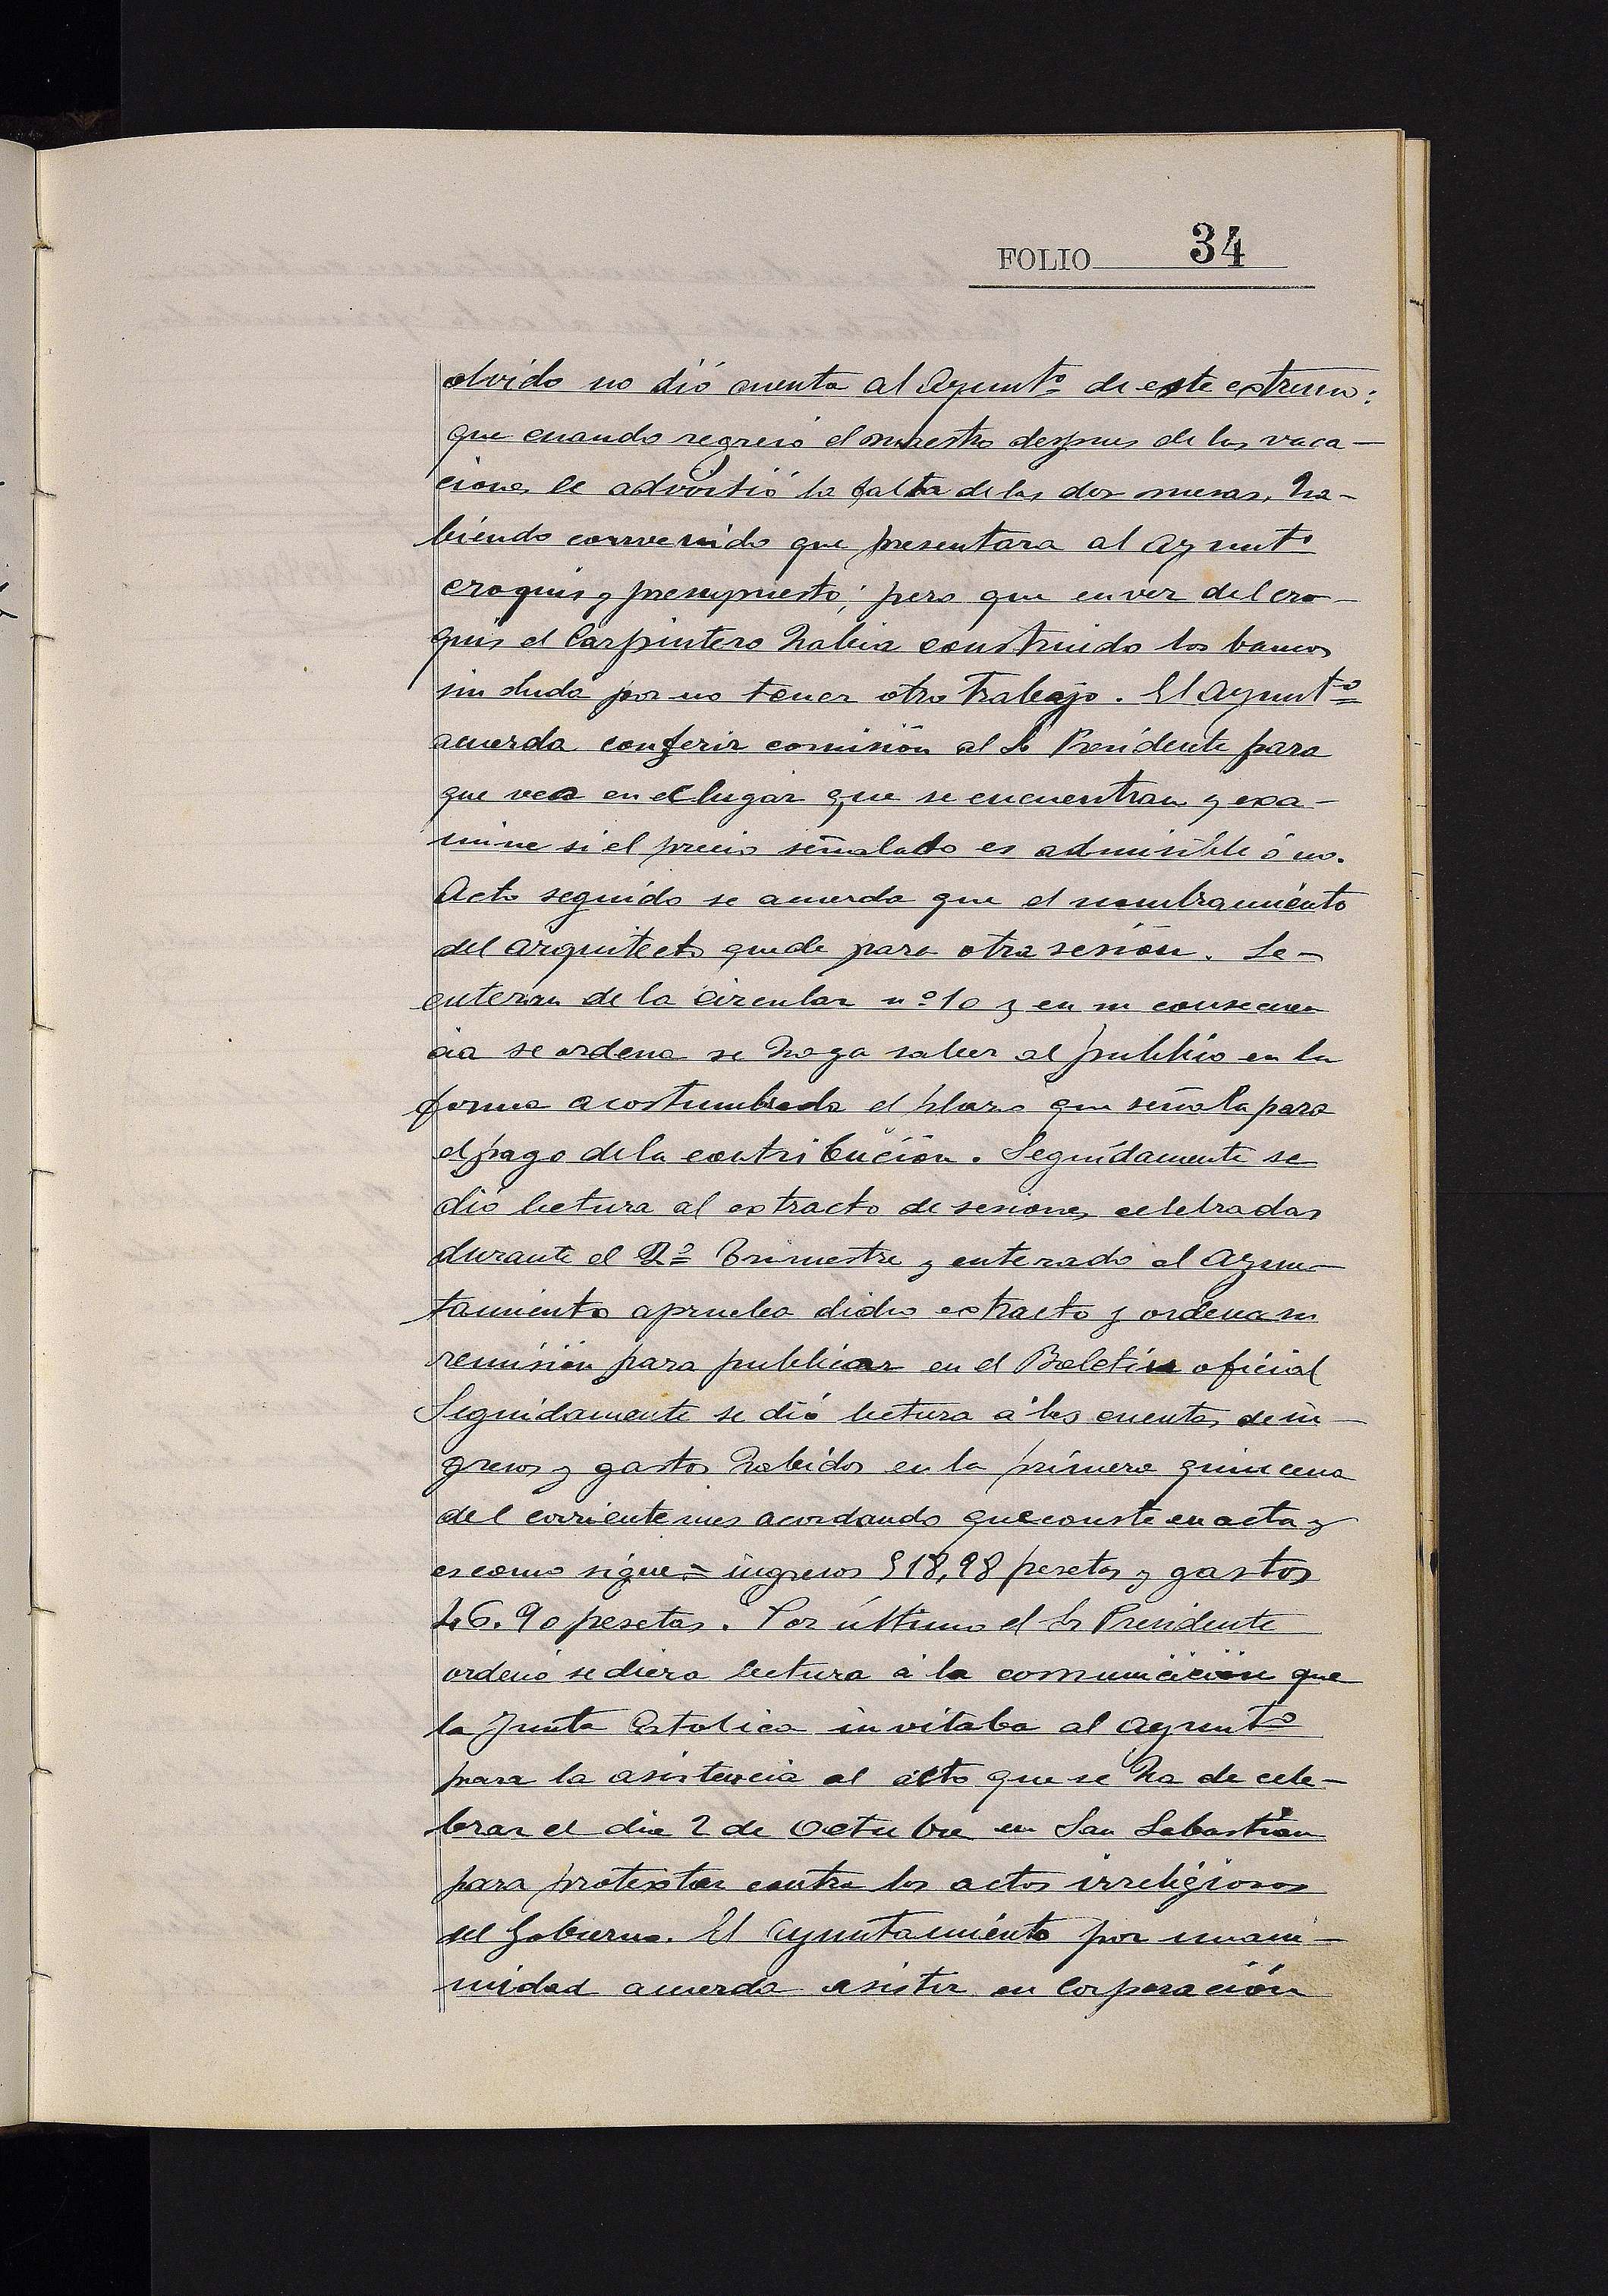 FOLIO 34
olvido no dió cuenta al Ayuntº de este extremo:
que cuando regresó el maestro despues de las vaca-
ciones le advirtió la falta de las dos mesas, ha-
biendo convenido que presentara al ayuntº
croquis y presupuesto; pero que en vez del cro-
quis el Carpintero habia construido los bancos
sin duda por no tener otro trabajo. El Ayuntº
acuerda conferir comisión al Sr Presidente para
que vea en el lugar que se encuentran y exa-
mine si el precio señalado es admisible ó no.
Acto seguido se acuerda que el nombramiento
del arquitecto quede para otra sesión. Se-
enteran de la circular nº 10 y en su consecuen
cia se ordena se haga saber al publico en la
forma acostumbrada el plazo que señala para
el pago de la contribución. Seguidamente se
dió lectura al extracto de sesiones celebradas
durante el 2º Trimestre y enterado el Ayun-
tamiento aprueba dicho extracto y ordena su
remisión para publicar en el Boletin oficial
Seguidamente se dió lectura á las cuentas de in-
gresos y gastos habidos en la primera quincena
del corriente mes acordando que conste en acta y
es como sigue = ingresos 518,98 pesetas y gastos
46.90 pesetas. Por último el Sr Presidente
ordenó se diera lectura á la comunicición que
la Junta Catolica invitaba al ayuntº
para la asistencia al acto que se ha de cele-
brar el dia 2 de Octubre en San Sebastián
para protextar contra los actos irreligiosos
del Gobierno. El Ayuntamiento por unani-
midad acuerda asistir en Corporación